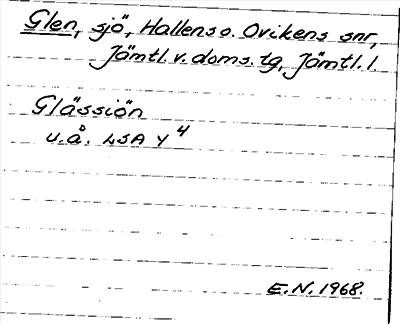 Glen, sjö, Hallens o. Ovikens snr,
Jämtl. v. doms. tg, Jämtl. l.
Glässiön
u.å. LSA Y 4
E.N. 1968.